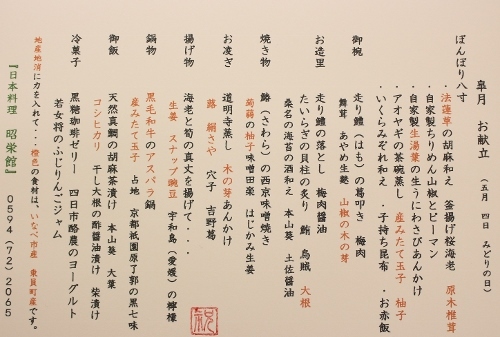 皐月　お献立　（五月　四日　みどりの日）
ぼんぼり八寸
・法蓮草の胡麻和え　釜揚げ桜海老　原木椎茸
・自家製ちりめん山椒とピーマン
・自家製生湯葉の生うにわさびあんかけ
・アオヤギの茶碗蒸し　産みたて玉子　柚子
・いくらみぞれ和え　・子持ち昆布　・お赤飯
御椀　走り鱧（はも）の葛叩き　梅肉
舞茸　あやめ生麩　山椒の木の芽
お造里　走り鱧の落とし　梅肉醤油
たいらぎの貝柱の炙り　鮪　烏賊　大根
桑名の海苔の酒和え　本山葵　土佐醤油
焼き物　鰆（さわら）の西京味噌焼き
蒟蒻の柚子味噌田楽　はじかみ生姜
お凌ぎ　道明寺蒸し　木の芽あんかけ
蕗　絹さや　穴子　吉野葛
揚げ物　海老と筍の真丈を揚げて・・・
生姜　スナップ豌豆　宇和島（愛媛）の檸檬
鍋物　黒毛和牛のアスパラ鍋
産みたて玉子　占地　京都祇園原了郭の黒七味
御飯　天然真鯛の胡麻茶漬け　本山葵　大葉
コシヒカリ　干し大根の酢醤油漬け　柴漬け
冷菓子　黒糖珈琲ゼリー　四日市酪農のヨーグルト
若女将のふじりんごジャム
地産地消に力を入れて・・橙色の食材は、いなべ市産　東員町産です。
『日本料理　昭栄館』　0594（72）2065
祝